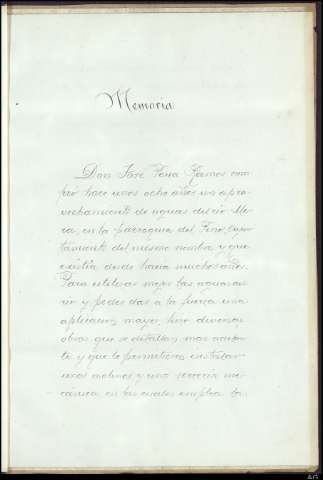 Memoria
Don José Pena Ramos com
pró hace unos ocho años un apro
vechamiento de aguas del río Me
ra, en la parroquia del Freijo, ayun
tamiento del mismo nombre, y que
existía desde hacía muchos años.
Para utilizar mejor las aguas del
río y poder dar a la fuerza una
aplicación mayor, hizo diversas
obras que se detallan mas adelan
te y que le permitieron instalar
unos molinos y una serrería me
cánica, en los cuales emplea la